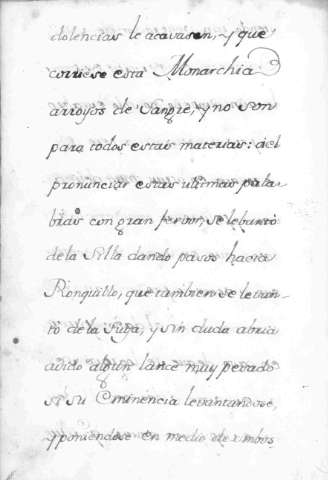 dolencias le acavasen, y que
corriese esta Monarchia
arroyos de Sangre, y no son
para todos estas materias: a el
pronunciar estas ultimas pala-
bras con gran fervor, se lebantó
de la Silla dando pasos hacia
Ronquillo, que tambien se levan-
tó de la suya, y sin duda abria
avido algun lance muy pesado
si su Eminencia levantandose,
y poniendose en medio de ambos